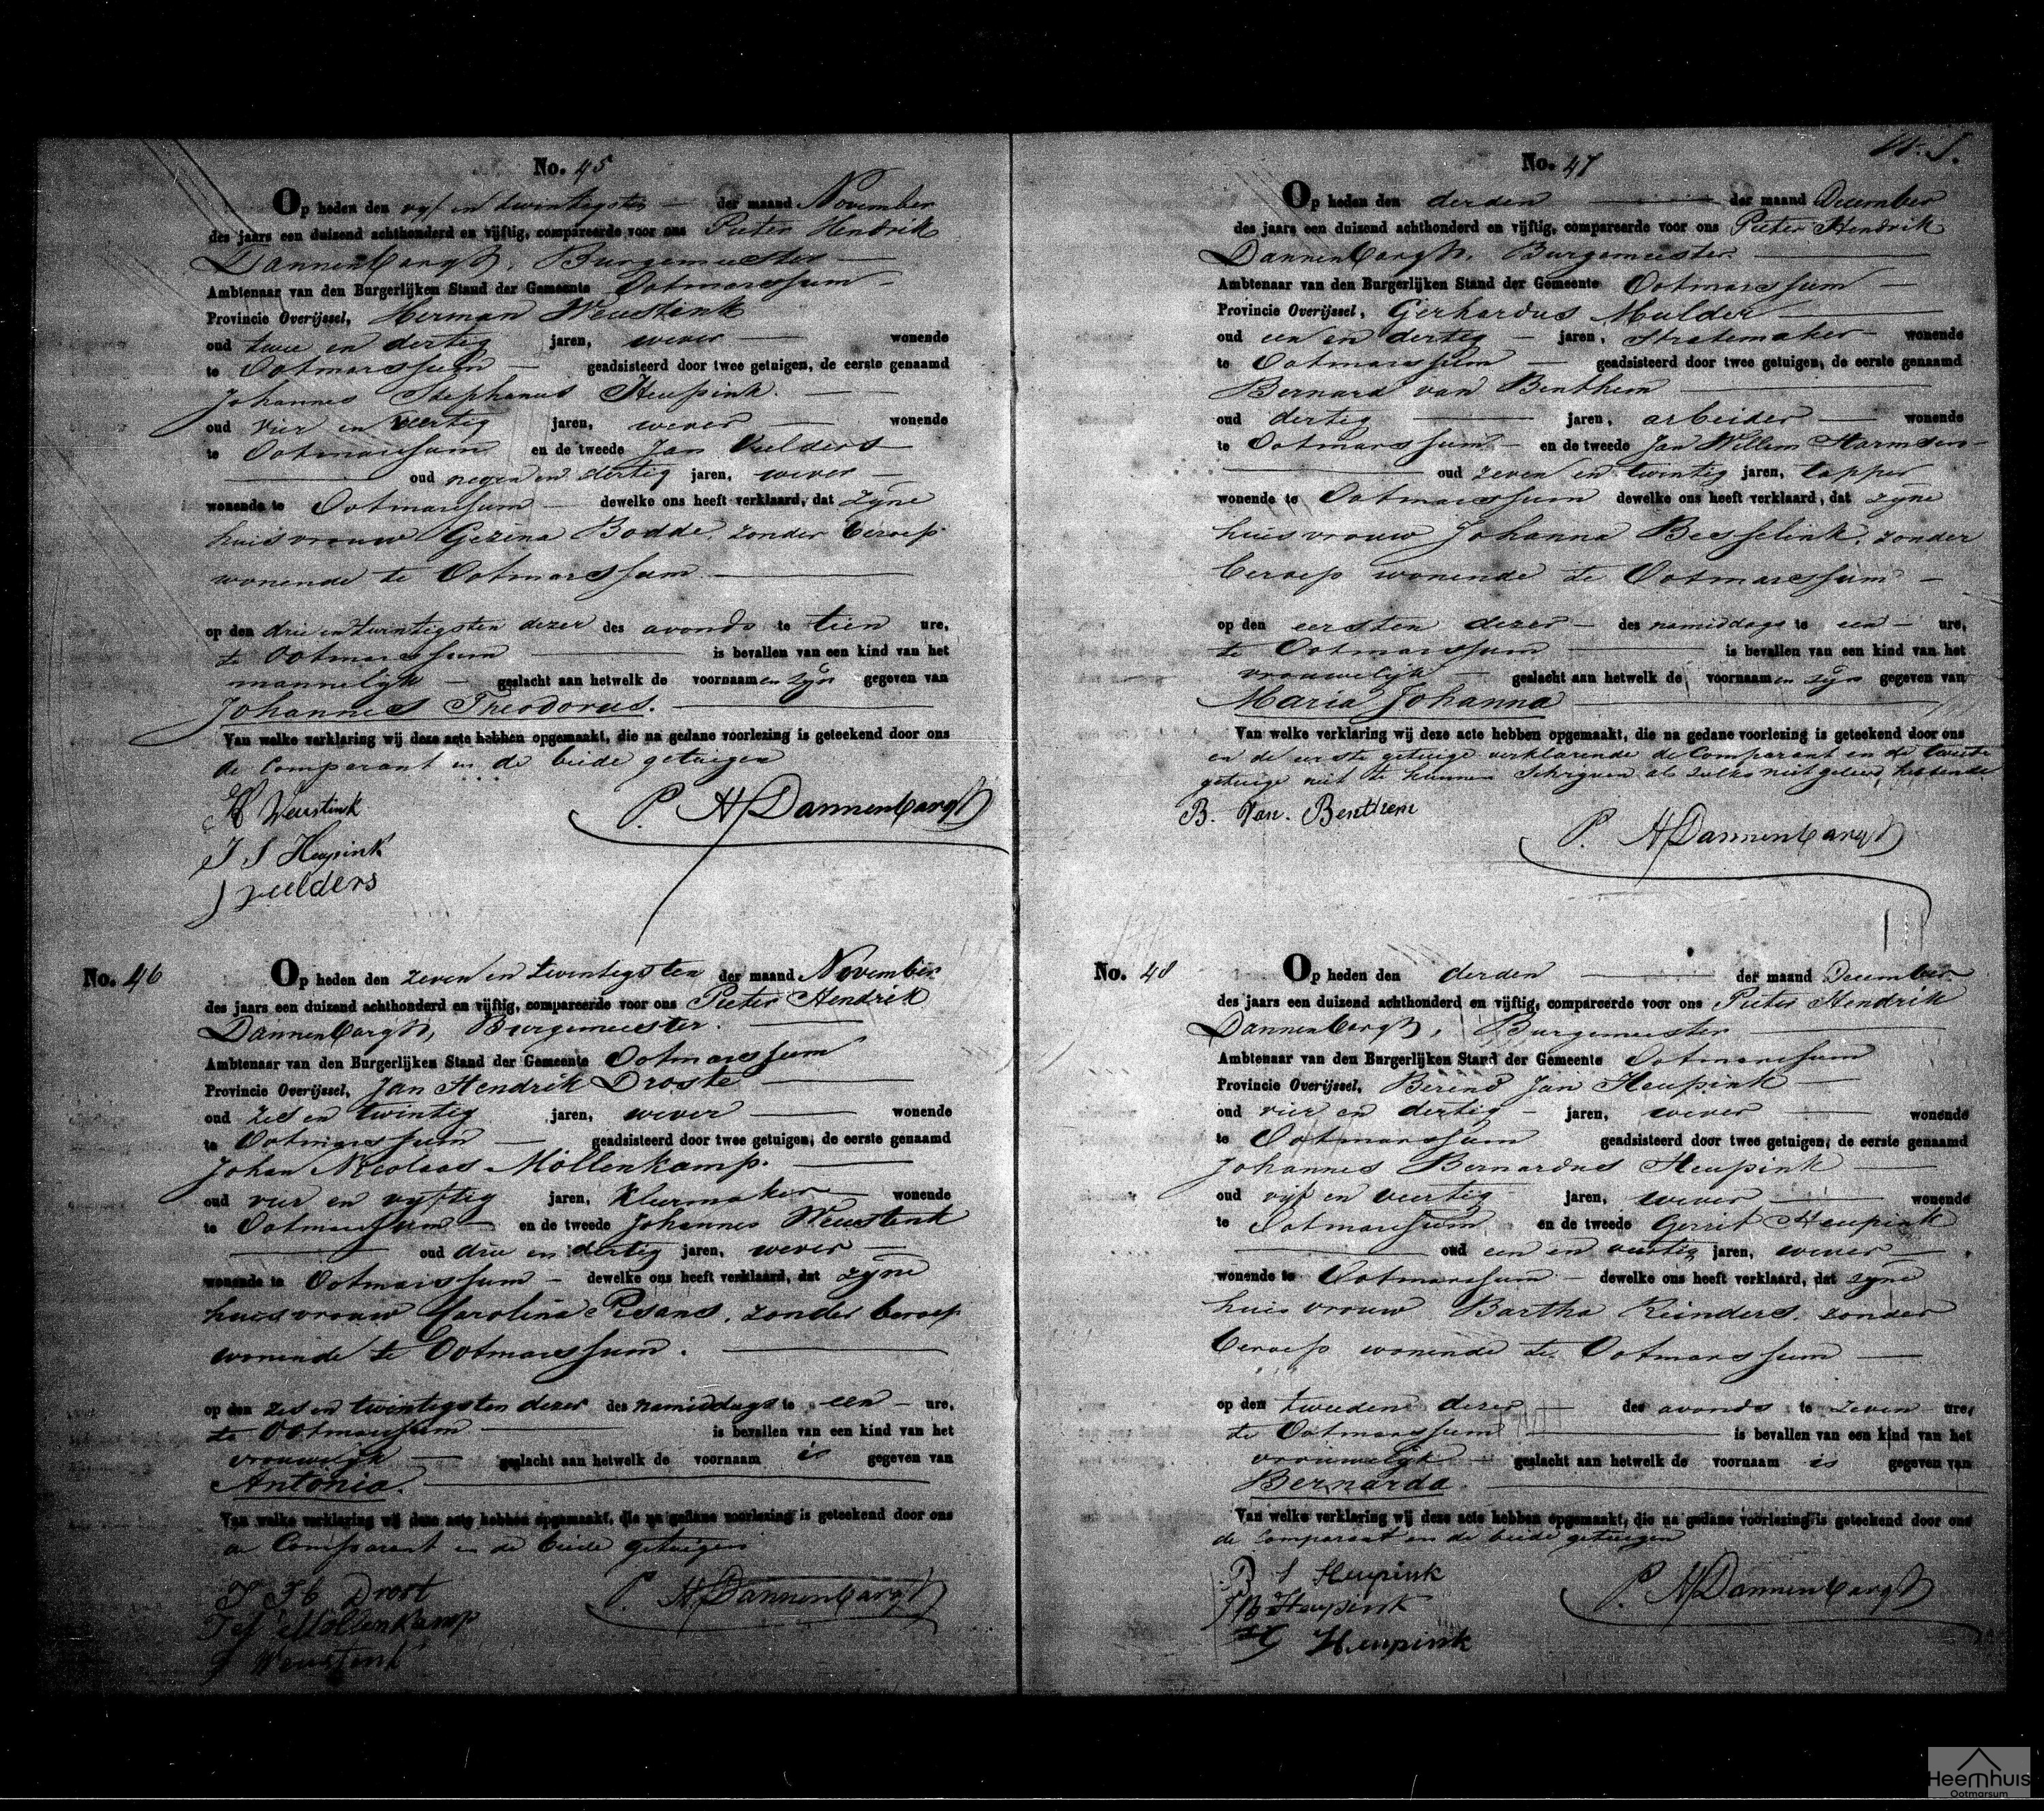 No. 45
Op heden den vyf en twintigsten der maand November
des jaars een duizend achthonderd en vijftig, compareerde voor ons Pieter Hendrik
Dannenbargh, Burgemeester
Ambtenaar van den Burgerlijken Stand der Gemeente Ootmarssum
Provincie Overijssel, Herman Weustink
oud twee en dertig jaren, wever wonende
te Ootmarssum geadsisteerd door twee getuigen, de eerste genaamd
Johannes Stephanus Heupink.
oud vier en veertig jaren, wever wonende
te Ootmarssum en de tweede Jan Velders
oud negen en dertig jaren, wever
wonende te Ootmarssum dewelke ons heeft verklaard, dat zyne
huisvrouw Gezina Bodde, zonder beroep
wonende te Ootmarssum
op den drie en twintigsten dezer des avonds te tien ure,
te Ootmarssum is bevallen van een kind van het
mannelyk geslacht aan hetwelk de voornaamen zyn gegeven van
Johannes Theodorus.
Van welke verklaring wij deze acte hebben opgemaakt, die na gedane voorlezing is geteekend door ons
de Comparant en de beide getuigen
H Weustink
P. H Dannenbargh
J S Heupink
J velders
No. 46
Op heden den zeven en twintigsten der maand November
des jaars een duizend achthonderd en vijftig, compareerde voor ons Pieter Hendrik
Dannenbargh, Burgemeester.
Ambtenaar van den Burgerlijken Stand der Gemeente Ootmarssum
Provincie Overijssel, Jan Hendrik Droste
oud zes en twintig jaren, wever wonende
te Ootmarssum geadsisteerd door twee getuigen, de eerste genaamd
Johan Nicolaas Möllenkamp.
oud vier en vyftig jaren, Kleermaker wonende
te Ootmarssum en de tweede Johannes Weustink
oud drie en dertig jaren, wever
wonende te Ootmarssum dewelke ons heeft verklaard, dat zyne
huisvrouw Carolina, zonder beroep
wonende te Ootmarssum.
op den zes en twintigsten dezer des namiddags te een ure,
te Ootmarssum is bevallen van een kind van het
vrouwelijk geslacht aan hetwelk de voornaam is gegeven van
Antonia.
Van welke verklaring wij deze acte hebben opgemaakt, die na gedane voorlezing is geteekend door ons
de Comparant en de beide getuigen
J H Drost
P. H Dannenbargh
Möllenkamp
J Weustink
No. 47
Op heden den derden der maand December
des jaars een duizend achthonderd en vijftig, compareerde voor ons Pieter Hendrik
Dannenbargh, Burgemeester.
Ambtenaar van den Burgerlijken Stand der Gemeente Ootmarssum
Provincie Overijssel, Gerhardus Mulder
oud een en dertig jaren, Stratemaker wonende
te Ootmarssum geadsisteerd door twee getuigen, de eerste genaamd
Bernard van Benthem
oud dertig jaren, arbeider wonende
te Ootmarssum en de tweede Jan Willem Harmsen
oud zeven en twintig jaren, tapper
wonende te Ootmarssum dewelke ons heeft verklaard, dat zyne
huisvrouw Johanna Besselink, zonder
beroep wonende te Ootmarssum
op den eersten dezer des namiddags te een ure,
te Ootmarssum is bevallen van een kind van het
vrouwelijk geslacht aan hetwelk de voornaamen zyn gegeven van
Maria Johanna
Van welke verklaring wij deze acte hebben opgemaakt, die na gedane voorlezing is geteekend door ons
en de eerste getuige verklarende de Comparant en de tweede
getuige niet te kunnen Schryven als zulks niet geleerd hebbende
B. Van. Benthem
P. H Dannenbargh
No. 48
Op heden den derden der maand December
des jaars een duizend achthonderd en vijftig, compareerde voor ons Pieter Hendrik
Dannenbargh, Burgemeester
Ambtenaar van den Burgerlijken Stand der Gemeente Ootmarssum
Provincie Overijssel, Berend Jan Heupink
oud vier en dertig jaren, wever wonende
te Ootmarssum geadsisteerd door twee getuigen, de eerste genaamd
Johannes Bernardus Heupink
oud vijf en veertig jaren, wever wonende
te Ootmarssum en de tweede Gerrit Heupink
oud een en veertig jaren, wever
wonende te Ootmarssum dewelke ons heeft verklaard, dat zyne
huisvrouw Bartha Reinders, zonder
beroep wonende te Ootmarssum
op den tweeden dezer des avonds te zeven ure,
te Ootmarssum is bevallen van een kind van het
vrouwelijk geslacht aan hetwelk de voornaam is gegeven van
Bernarda.
Van welke verklaring wij deze acte hebben opgemaakt, die na gedane voorlezing is geteekend door ons
de Comparant en de beide getuigen
Heupink
P. H Dannenbargh
JB Heupink
G Heupink
Heemhuis
Ootmarsum